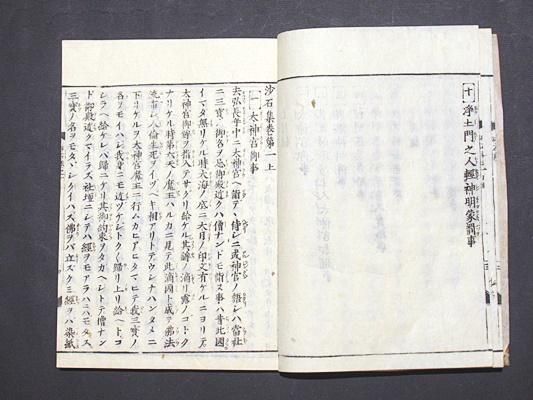 十 淨土門之人輕神明蒙罰事
沙石集巻第一上
一 太神宮御事
去弘長年中ニ太神宮ヘ詣テ侍シニ或神官ノ語シハ當社
ニ三寳ノ御名ヲ忌御殿近クハ僧ナンドモ詣ヌ事ハ昔此國
イマタ無リケル時大海ノ底ニ大日ノ印文有ケルニヨリテ
太神宮御鉾ヲ指入テサグリ給ケル其鉾ノ滴リ露ノコトク
ナリケル時第六天ノ魔王ハルカニ見テ此滴國ト成テ佛法
流布シ人倫生死ヲイツヘキ相アリトテウシナハンタメニ
下リケルヲ太神宮魔王ニ行ムカヒアヒタマヒテ我三寳ノ
名ヲモイハシ我身ニモ近ツケシトク〱歸リ上リ給ヘトコ
シラヘ給ケレハ歸ニケリ其御約束ヲタカヘシトテ僧ナン
ド御殿近クマイラス社壇ニシテハ經ヲモアラハニハモタス
三寳ノ名ヲモタヽシクイハス佛ヲバ立スクミ經ヲハ染紙